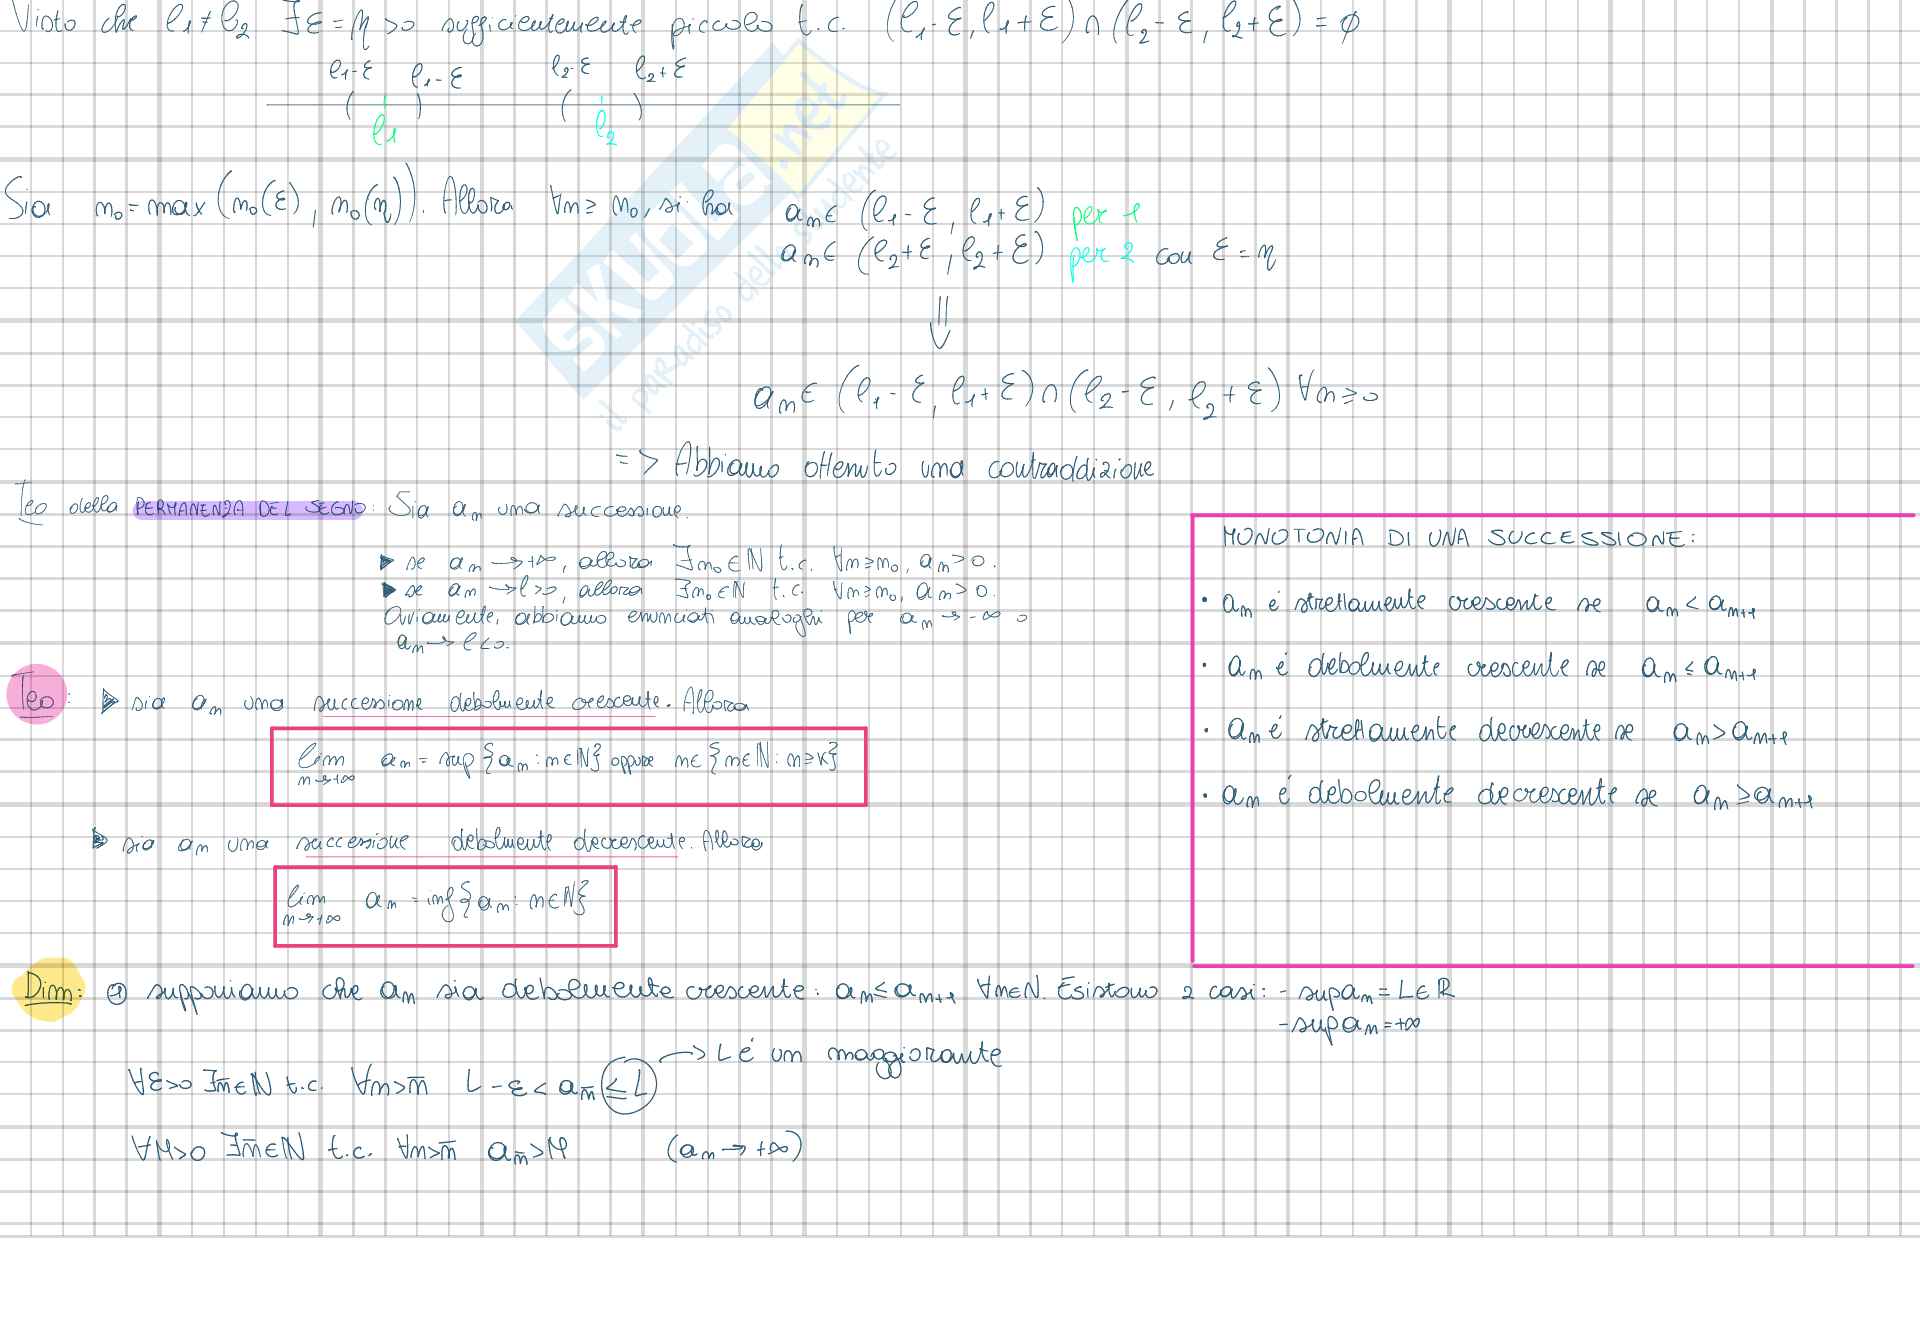 Visto che l₁ ≠ l₂ ∃ε = η >0 sufficientemente piccolo t.c. (l₁-ε, l₁+ε) ∩ (l₂-ε, l₂+ε) = ∅
l₁-ε l₁-ε l₂-ε l₂+ε
( ) ( )
l₁ l₂
Sia n₀ = max (n₀(ε), n₀(η)). Allora ∀n ≥ n₀, si ha aₙ ∈ (l₁-ε, l₁+ε) per 1
aₙ ∈ (l₂+ε, l₂+ε) per 2 con ε = η
⇓
aₙ ∈ (l₁-ε, l₁+ε) ∩ (l₂-ε, l₂+ε) ∀n ≥ 0
=> Abbiamo ottenuto una contraddizione
Teo della PERMANENZA DEL SEGNO: Sia aₙ una successione.
▶ se aₙ → +∞, allora ∃n₀ ∈ ℕ t.c. ∀n ≥ n₀, aₙ > 0.
▶ se aₙ → l>0, allora ∃n₀ ∈ ℕ t.c. ∀n ≥ n₀, aₙ > 0.
Ovviamente, abbiamo enunciati analoghi per aₙ → -∞ o
aₙ → l<0.
MONOTONIA DI UNA SUCCESSIONE:
• aₙ é strettamente crescente se aₙ < aₙ₊₁
• aₙ é debolmente crescente se aₙ ≤ aₙ₊₁
• aₙ é strettamente decrescente se aₙ > aₙ₊₁
• aₙ é debolmente decrescente se aₙ ≥ aₙ₊₁
Teo: ▶ sia aₙ una successione debolmente crescente. Allora
lim n→+∞ aₙ = sup {aₙ : n∈ℕ} oppure n∈{n∈ℕ : n ≥ k}
▶ sia aₙ una successione debolmente decrescente. Allora
lim n→+∞ aₙ = inf {aₙ : n∈ℕ}
Dim: ① supponiamo che aₙ sia debolmente crescente: aₙ ≤ aₙ₊₁ ∀n∈ℕ. Esistono 2 casi: - sup aₙ = L∈ℝ
- sup aₙ = +∞
→ L é un maggiorante
∀ε>0 ∃n̄∈ℕ t.c. ∀n>n̄ L-ε < a_n̄ ≤ L
∀M>0 ∃n̄∈ℕ t.c. ∀n>n̄ a_n̄ > M (aₙ → +∞)
SKUOLA.net
il paradiso dello studente